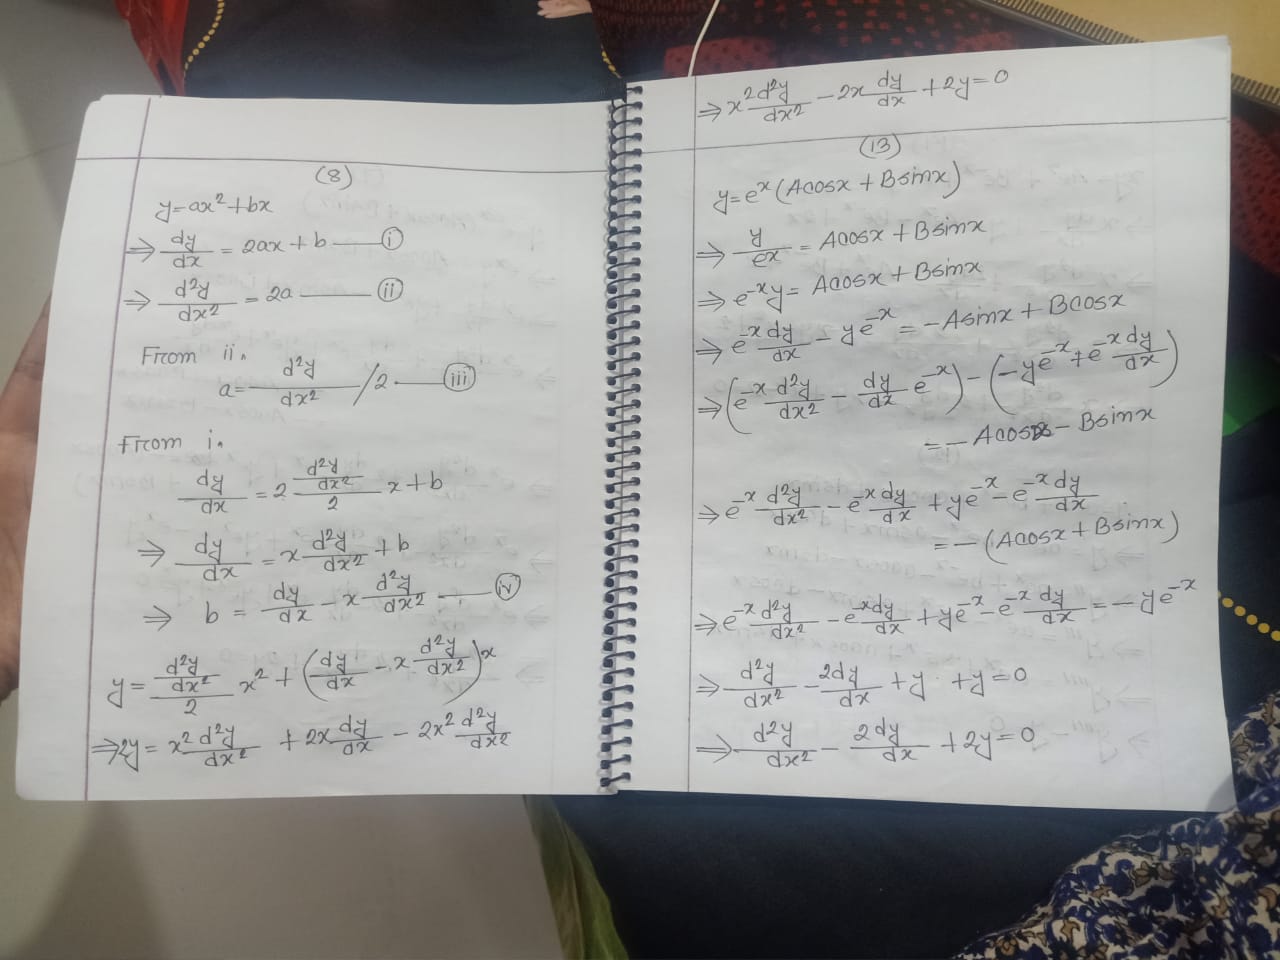 (8)
y=ax²+bx
⇒ dy/dx = 2ax + b —— (i)
⇒ d²y/dx² = 2a —— (ii)
From ii.
a = d²y/dx² /2 —— (iii)
From i.
dy/dx = 2 (d²y/dx²)/2 x + b
⇒ dy/dx = x d²y/dx² + b
⇒ b = dy/dx - x d²y/dx² —— (iv)
y = (d²y/dx²)/2 x² + (dy/dx - x d²y/dx²)x
⇒ 2y = x² d²y/dx² + 2x dy/dx - 2x² d²y/dx²
⇒ x² d²y/dx² - 2x dy/dx + 2y = 0
(13)
y = eˣ (Acosx + Bsinx)
⇒ y/eˣ = Acosx + Bsinx
⇒ e⁻ˣy = Acosx + Bsinx
⇒ e⁻ˣ dy/dx - ye⁻ˣ = -Asinx + Bcosx
⇒ (e⁻ˣ d²y/dx² - dy/dx e⁻ˣ) - (-ye⁻ˣ + e⁻ˣ dy/dx)
= - Acosx - Bsinx
⇒ e⁻ˣ d²y/dx² - e⁻ˣ dy/dx + ye⁻ˣ - e⁻ˣ dy/dx
= - (Acosx + Bsinx)
⇒ e⁻ˣ d²y/dx² - e⁻ˣ dy/dx + ye⁻ˣ - e⁻ˣ dy/dx = - ye⁻ˣ
⇒ d²y/dx² - 2dy/dx + y + y = 0
⇒ d²y/dx² - 2dy/dx + 2y = 0